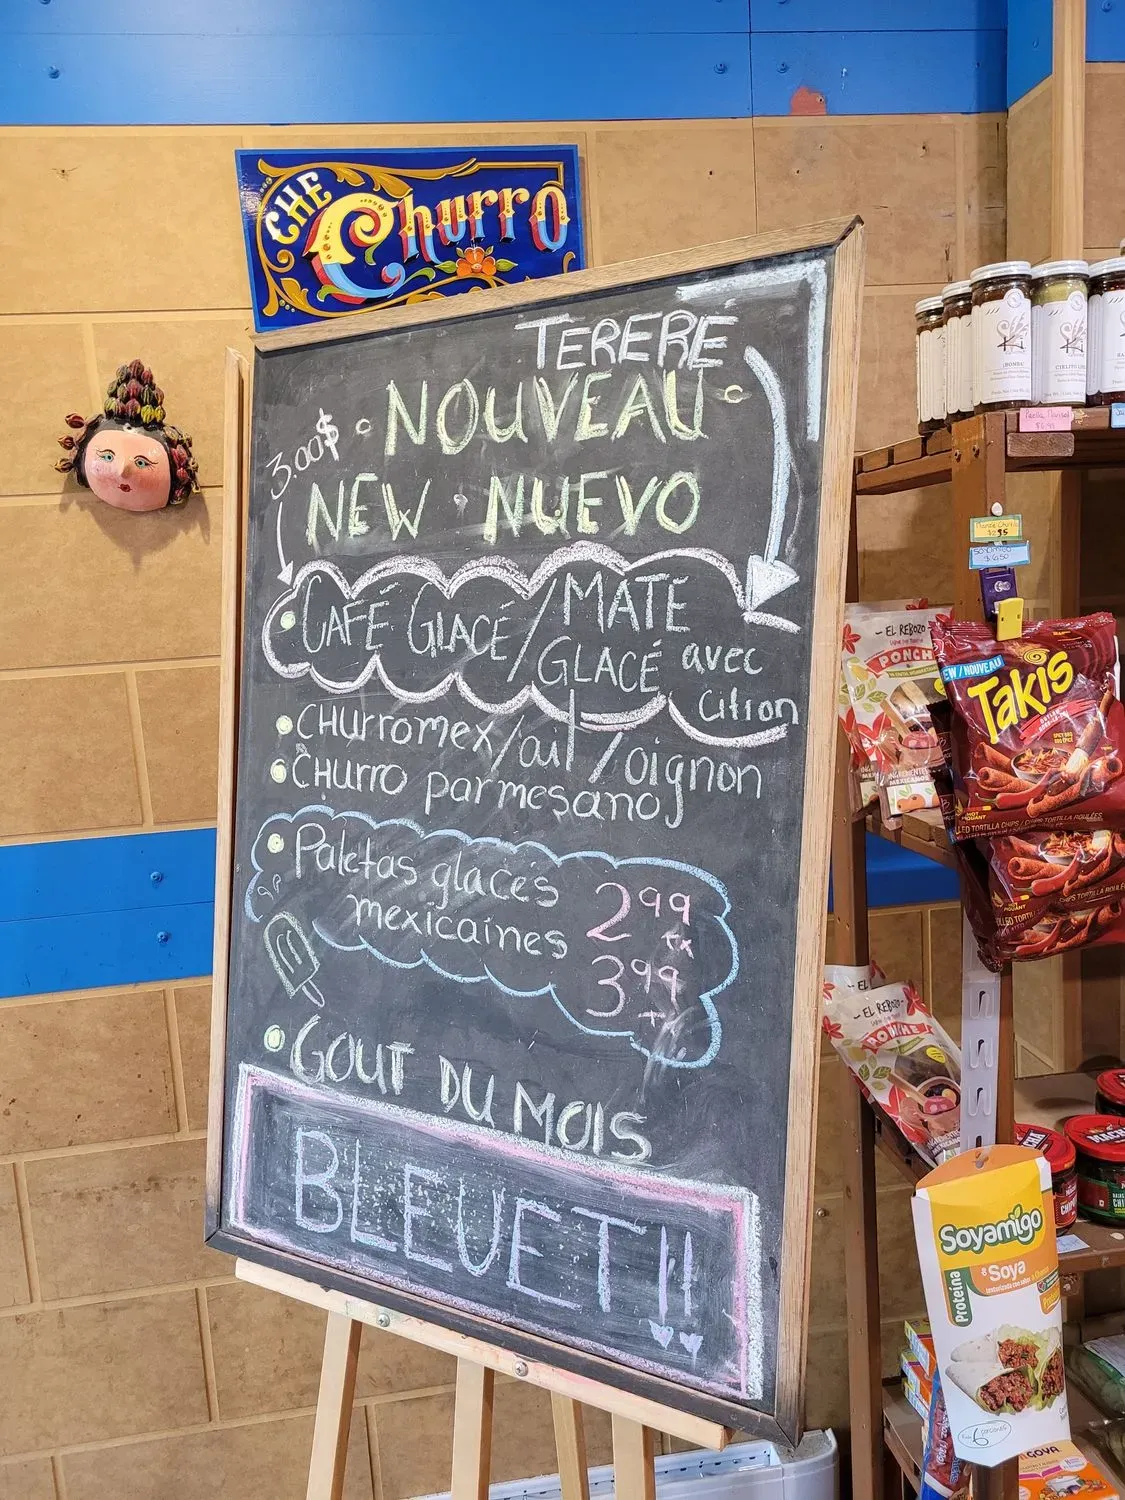 CHE
Churro
TERERÉ
• NOUVEAU •
3.00$
NEW • NUEVO
• CAFÉ GLACÉ / MATÉ
GLACÉ avec
citron
• CHURROMEX/ail/oignon
• CHURRO parmesano
• Paletas glacés
mexicaines
2.99
+x
3.99
+x
• GOUT DU MOIS
BLEUET!!
¡BOMBA!
CIELITO
$6.99
$2.95
$6.50
- EL REBOZO -
PONCHE
NEW / NOUVEAU
Takis
ROLLED TORTILLA CHIPS / CHIPS TORTILLA ROULÉES
- EL REBOZO -
Soyamigo
Soya
Proteína
6
GOYA